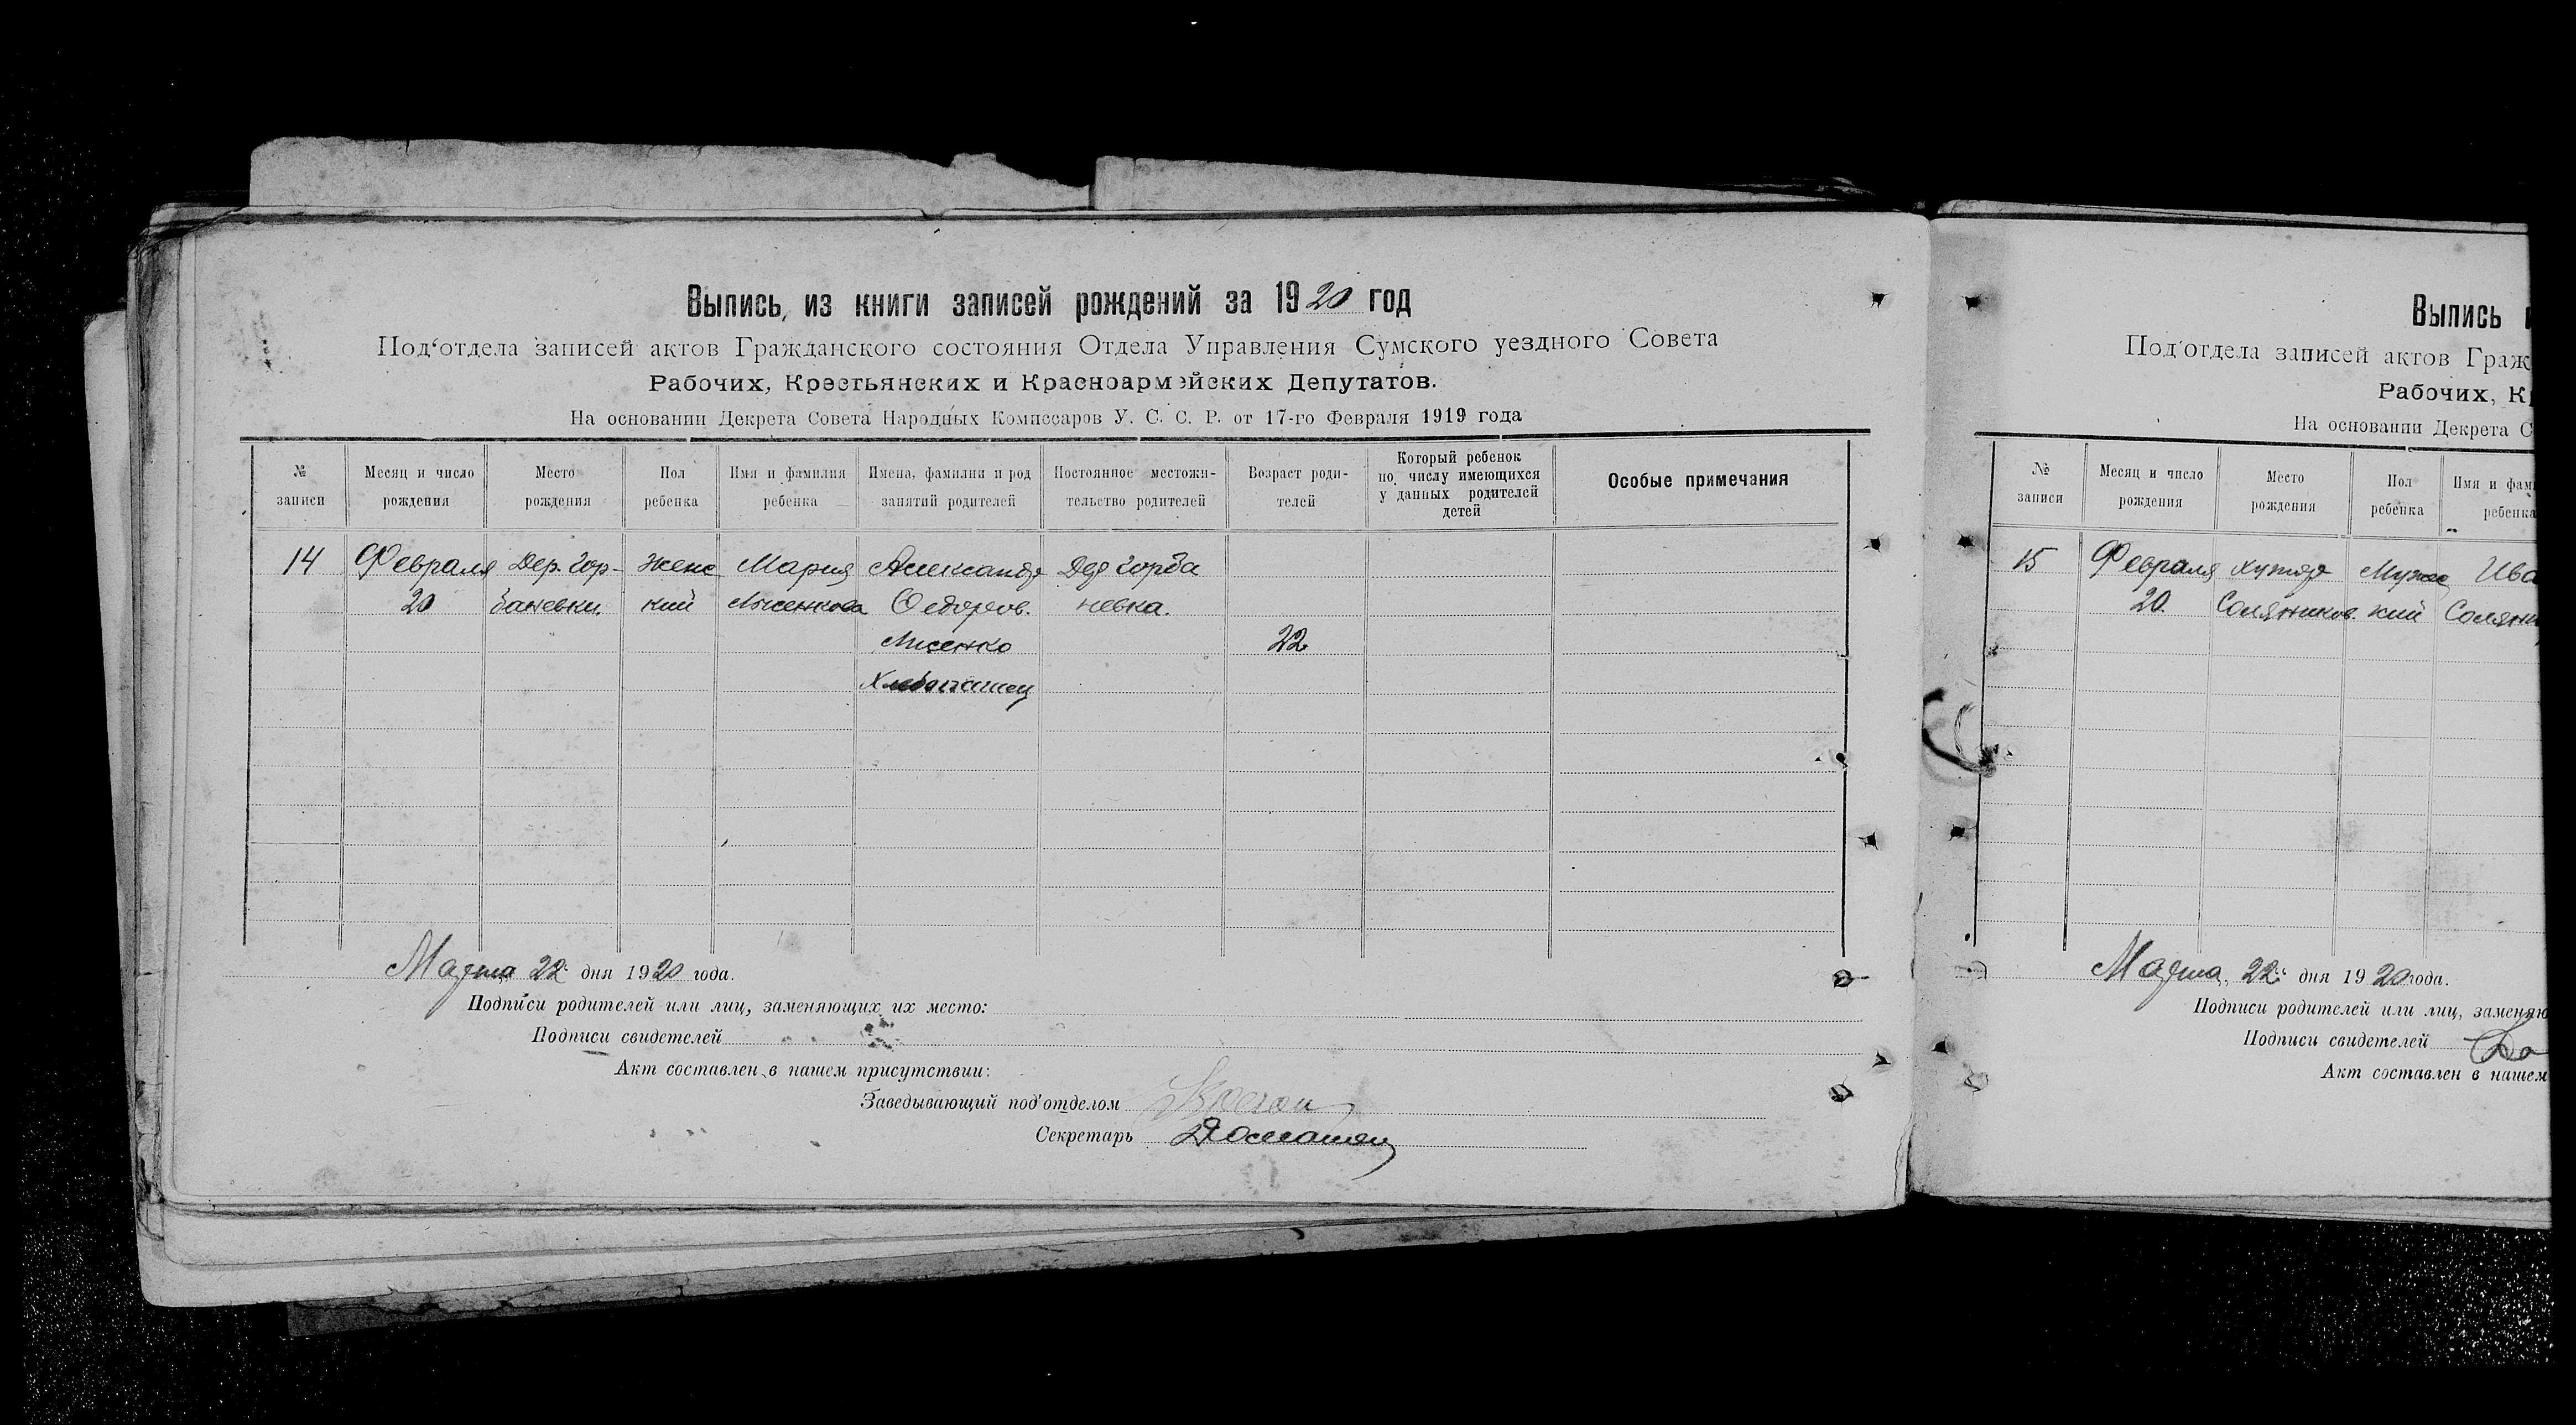 Выпись, из книги записей рождений за 1920 год
Под'отдела записей актов Гражданского состояния Отдела Управления Сумского уездного Совета
Рабочих, Крестьянских и Красноармейских Депутатов.
На основании Декрета Совета Народных Комиссаров У. С. С. Р. от 17-го Февраля 1919 года
№ записи
Месяц и число рождения
Место рождения
Пол ребенка
Имя и фамилия ребенка
Имена, фамилии и род занятий родителей
Постоянное местожи-тельство родителей
Возраст роди-телей
Который ребенок по числу имеющихся у данных родителей детей
Особые примечания
14 Февраля Дер. Гор- Женс Мария Александр Дер Горба
20 баневки. кий Лысенкова Федоров. невка.
Лисенко 22
Хлебопашец
Марта 22 дня 1920 года.
Подписи родителей или лиц, заменяющих их место:
Подписи свидетелей
Акт составлен в нашем присутствии:
Заведывающий под'отделом
Секретарь
Выпись и
Под'отдела записей актов Граж
Рабочих, К
На основании Декрета С
№ записи
Месяц и число рождения
Место рождения
Пол ребенка
Имя и фам ребенка
15 Февраля Хутор Мужс Ива
20. Соляников. кий Соляни
Марта, 22 дня 1920 года.
Подписи родителей или лиц, заменяю
Подписи свидетелей До
Акт составлен в нашем